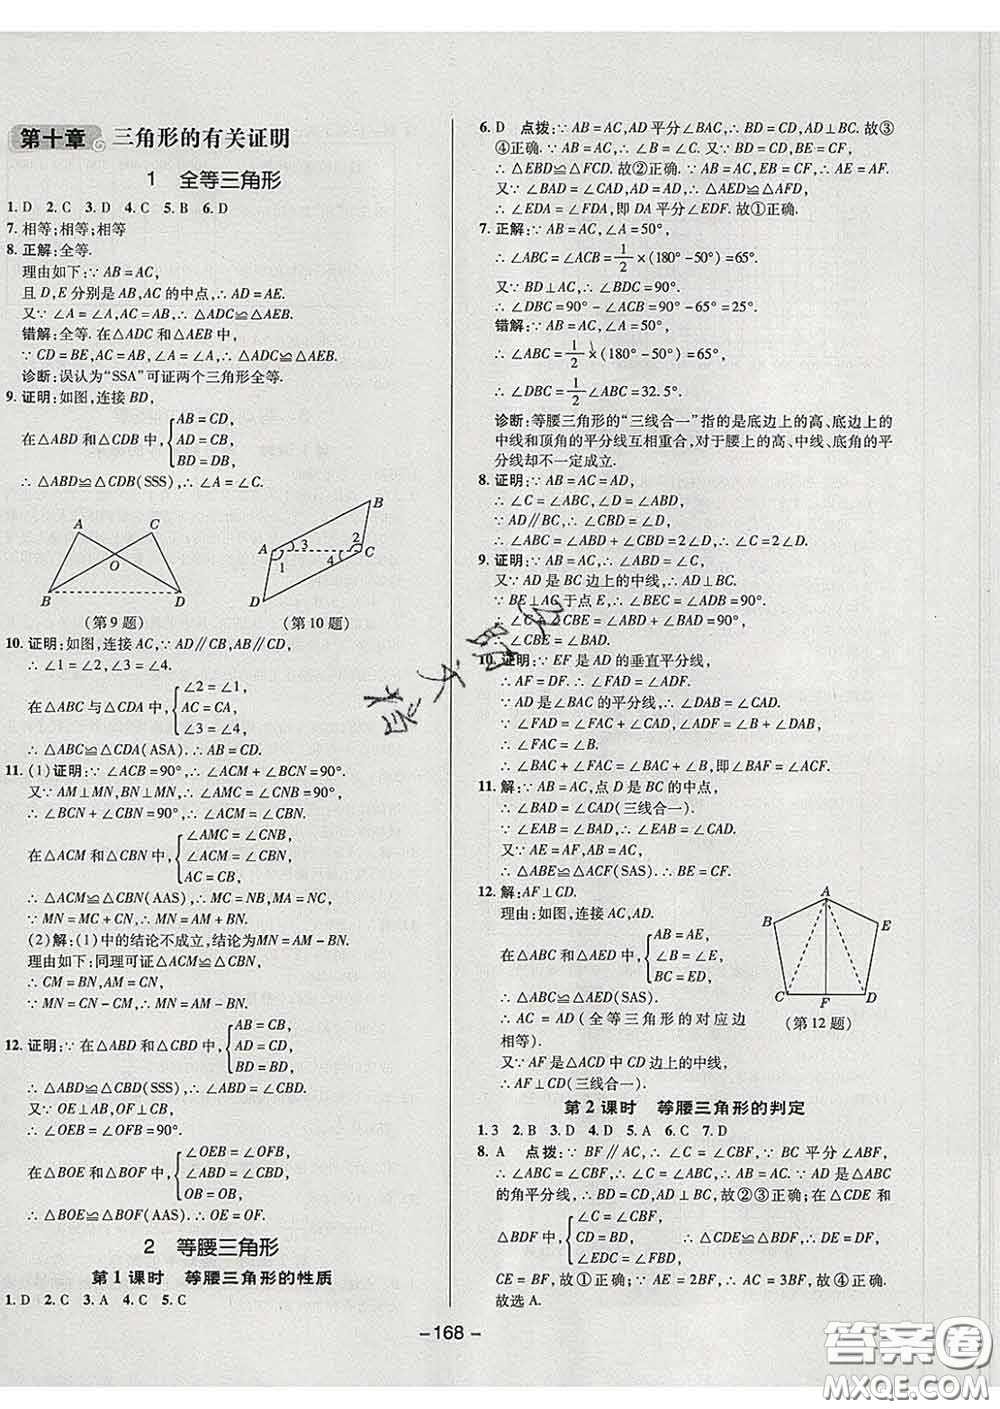 第十章 三角形的有关证明
1 全等三角形
1. D 2. C 3. D 4. C 5. B 6. D
7. 相等;相等;相等
8. 正解:全等.
理由如下:∵ AB = AC,
且 D,E 分别是 AB,AC 的中点,∴ AD = AE.
又∵ ∠A = ∠A,AB = AC,∴ △ADC≌△AEB.
错解:全等. 在△ADC 和△AEB 中,
∵ CD = BE,AC = AB,∠A = ∠A,∴ △ADC≌△AEB.
诊断:误认为“SSA”可证两个三角形全等.
9. 证明:如图,连接 BD,
在△ABD 和△CDB 中,{AB = CD,
AD = CB,
BD = DB,
∴ △ABD≌△CDB(SSS),∴ ∠A = ∠C.
A C O B D
(第 9 题)
B A 3 2 C 1 4 D
(第 10 题)
10. 证明:如图,连接 AC,∵ AD∥CB,AB∥CD,
∴ ∠1 = ∠2,∠3 = ∠4.
在△ABC 与△CDA 中,{∠2 = ∠1,
AC = CA,
∠3 = ∠4,
∴ △ABC≌△CDA(ASA).∴ AB = CD.
11. (1)证明:∵ ∠ACB = 90°,∴ ∠ACM + ∠BCN = 90°.
又∵ AM⊥MN,BN⊥MN,∴ ∠AMC = ∠CNB = 90°.
∴ ∠BCN + ∠CBN = 90°,∴ ∠ACM = ∠CBN.
在△ACM 和△CBN 中,{∠AMC = ∠CNB,
∠ACM = ∠CBN,
AC = CB,
∴ △ACM≌△CBN(AAS),∴ MC = NB,MA = NC,
∵ MN = MC + CN,∴ MN = AM + BN.
(2)解:(1)中的结论不成立,结论为MN = AM - BN.
理由如下:同理可证△ACM≌△CBN,
∴ CM = BN,AM = CN,
∵ MN = CN - CM,∴ MN = AM - BN.
12. 证明:∵ 在△ABD 和△CBD 中,{AB = CB,
AD = CD,
BD = BD,
∴ △ABD≌△CBD(SSS),∴ ∠ABD = ∠CBD.
又∵ OE⊥AB,OF⊥CB,
∴ ∠OEB = ∠OFB = 90°.
在△BOE 和△BOF 中,{∠OEB = ∠OFB,
∠ABD = ∠CBD,
OB = OB,
∴ △BOE≌△BOF(AAS).∴ OE = OF.
2 等腰三角形
第 1 课时 等腰三角形的性质
1. D 2. C 3. A 4. C 5. C
6. D 点拨:∵ AB = AC,AD 平分∠BAC,∴ BD = CD,AD⊥BC. 故③
④正确.∵ AB = AC,∴ ∠B = ∠C. 又∵ BD = DC,BE = CF,
∴ △EBD≌△FCD. 故②正确.∵ AB = AC,EB = CF,∴ AE = AF.
又∵ ∠BAD = ∠DAC,AD = AD,∴ △AED≌△AFD.
∴ ∠EDA = ∠FDA,即 DA 平分∠EDF. 故①正确.
7. 正解:∵ AB = AC,∠A = 50°,
∴ ∠ABC = ∠ACB = 1/2 ×(180° - 50°) = 65°.
又∵ BD⊥AC,∴ ∠BDC = 90°.
∴ ∠DBC = 90° - ∠ACB = 90° - 65° = 25°.
错解:∵ AB = AC,∠A = 50°,
∴ ∠ABC = 1/2 ×(180° - 50°) = 65°,
∴ ∠DBC = 1/2 ∠ABC = 32.5°.
诊断:等腰三角形的“三线合一”指的是底边上的高、底边上的
中线和顶角的平分线互相重合,对于腰上的高、中线、底角的平
分线却不一定成立.
8. 证明:∵ AB = AC = AD,
∴ ∠C = ∠ABC,∠D = ∠ABD,
∵ AD∥BC,∴ ∠CBD = ∠D,
∴ ∠ABC = ∠ABD + ∠CBD = 2∠D,∴ ∠C = 2∠D.
9. 证明:∵ AB = AC,∴ ∠ABC = ∠C,
又∵ AD 是 BC 边上的中线,∴ AD⊥BC.
∵ BE⊥AC 于点 E,∴ ∠BEC = ∠ADB = 90°.
∴ ∠C + ∠CBE = ∠ABD + ∠BAD = 90°,
∴ ∠CBE = ∠BAD.
10. 证明:∵ EF 是 AD 的垂直平分线,
∴ AF = DF.∴ ∠FAD = ∠ADF.
∵ AD 是∠BAC 的平分线,∴ ∠BAD = ∠CAD.
∵ ∠FAD = ∠FAC + ∠CAD,∠ADF = ∠B + ∠BAD,
∴ ∠FAC = ∠B.
∴ ∠BAC + ∠FAC = ∠B + ∠BAC,即∠BAF = ∠ACF.
11. 解:∵ AB = AC,点 D 是 BC 的中点,
∴ ∠BAD = ∠CAD(三线合一).
∵ ∠EAB = ∠BAD,∴ ∠EAB = ∠CAD.
又∵ AE = AF,AB = AC,
∴ △ABE≌△ACF(SAS).∴ BE = CF.
12. 解:AF⊥CD.
理由:如图,连接 AC,AD.
在△ABC 和△AED 中,{AB = AE,
∠B = ∠E,
BC = ED,
∴ △ABC≌△AED(SAS).
∴ AC = AD(全等三角形的对应边
相等).
又∵ AF 是△ACD 中 CD 边上的中线,
∴ AF⊥CD(三线合一).
A B E C F D
(第 12 题)
第 2 课时 等腰三角形的判定
1. 3 2. B 3. D 4. D 5. A 6. C 7. D
8. A 点拨:∵ BF∥AC,∴ ∠C = ∠CBF,∵ BC 平分∠ABF,
∴ ∠ABC = ∠CBF,∴ ∠C = ∠ABC,∴ AB = AC.∵ AD 是△ABC
的角平分线,∴ BD = CD,AD⊥BC,故②③正确;在△CDE 和
△BDF 中,{∠C = ∠CBF,
CD = BD,
∠EDC = ∠FDB,
∴ △CDE≌△BDF,∴ DE = DF,
CE = BF,故①正确;∵ AE = 2BF,∴ AC = 3BF,故④正确.
故选 A.
- 168 -
答案圈
MXQE.COM